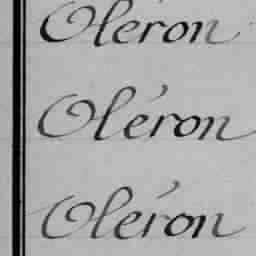 Oléron
Oléron
Oléron